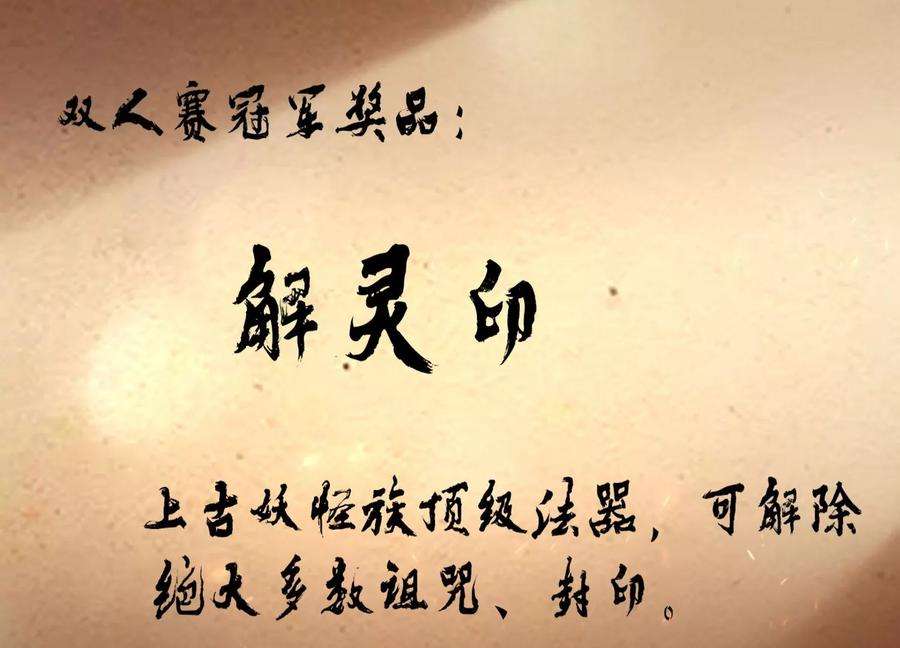 双人赛冠军奖品：
解灵印
上古妖怪族顶级法器，可解除
绝大多数诅咒、封印。